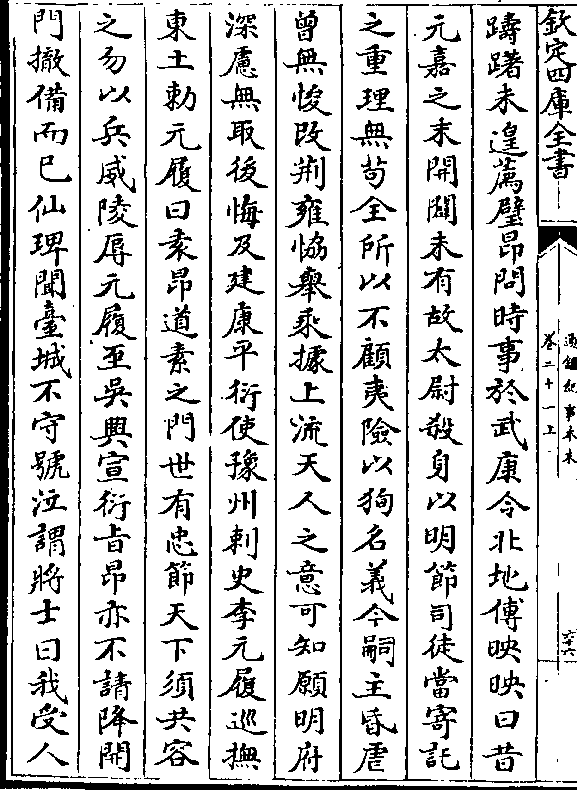 欽定四庫全書
通鑑紀事本末
卷二十一上
六十六
躊躇未遑薦璧昂問時事於武康令北地傅映映曰昔
元嘉之末開闢未有故太尉殺身以明節司徒當寄託
之重理無苟全所以不顧夷險以狥名義今嗣主昏虐
曾無悛改荆雍恊舉乘據上流天人之意可知願明府
深慮無取後悔及建康平衍使豫州刺史李元履巡撫
東土勅元履曰袁昂道素之門世有忠節天下須共容
之勿以兵威陵辱元履至吳興宣衍㫖昂亦不請降開
門撤備而已仙琕聞臺城不守號泣謂將士曰我受人